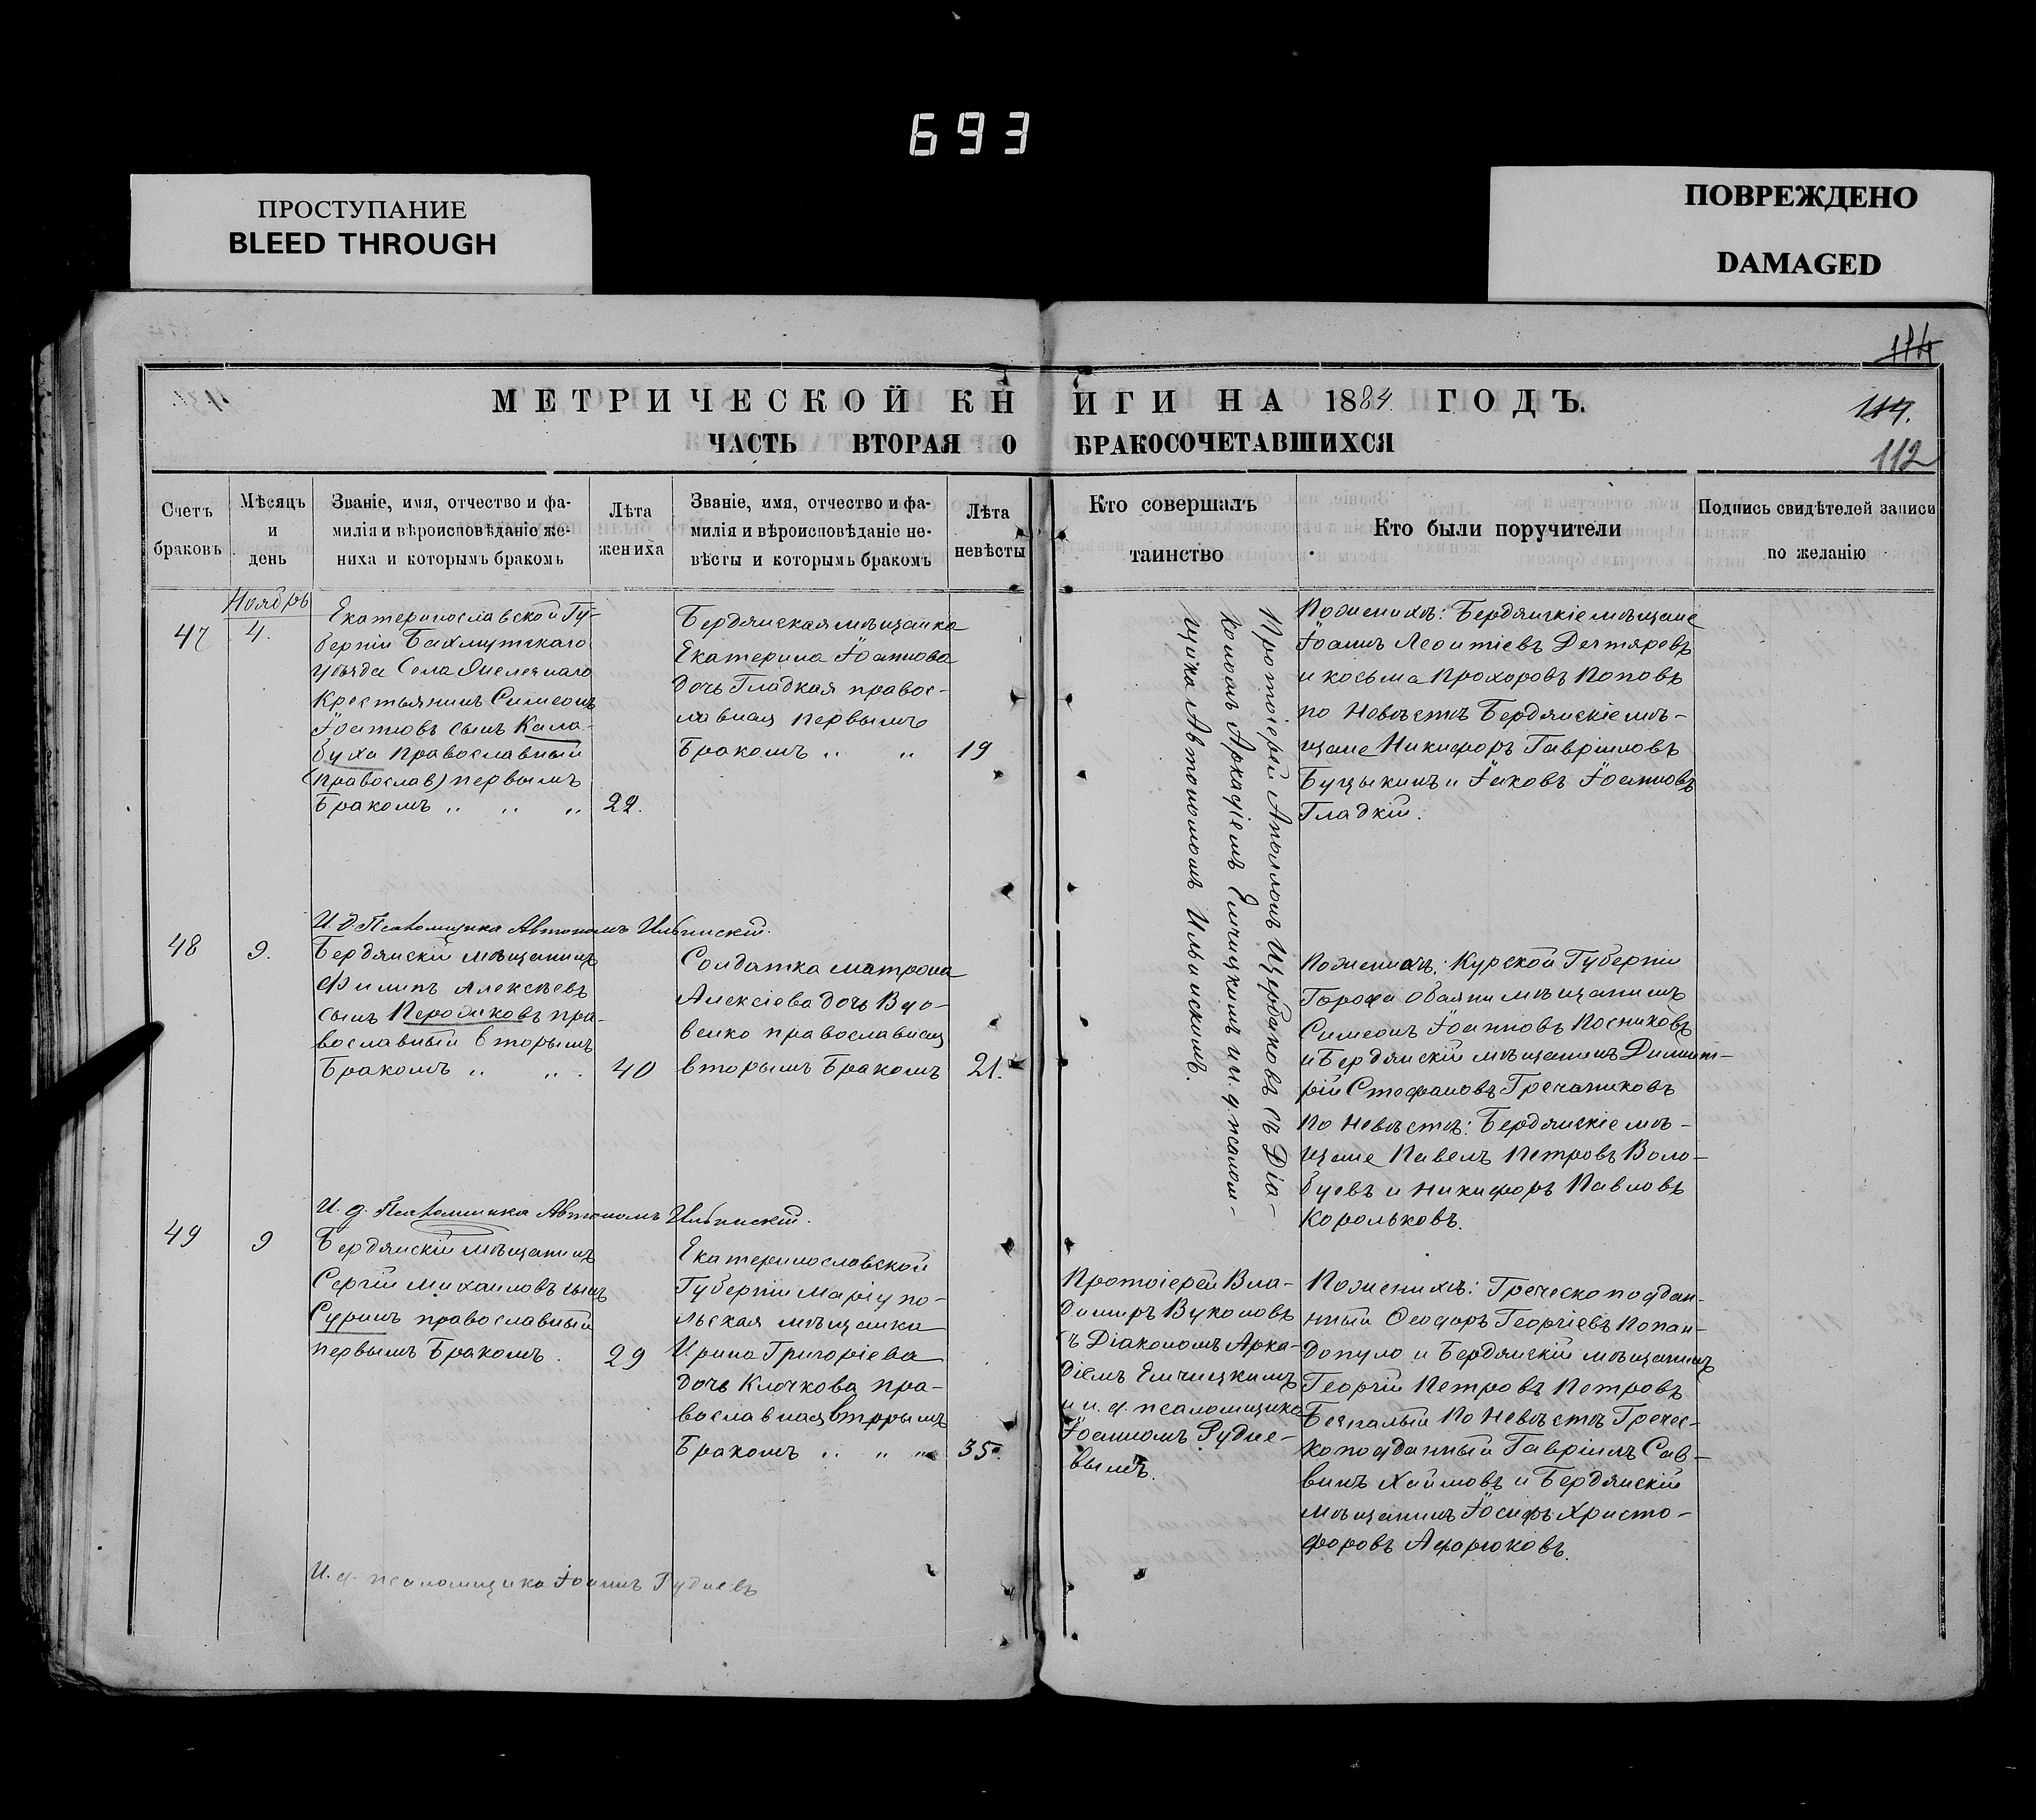 693
ПРОСТУПАНИЕ
BLEED THROUGH
ПОВРЕЖДЕНО
DAMAGED
114
114.
112
МЕТРИЧЕСКОЙ КНИГИ НА 1884. ГОДЪ.
ЧАСТЬ ВТОРАЯ О БРАКОСОЧЕТАВШИХСЯ
Счетъ
браковъ
Мѣсяцъ
и
день
Званіе, имя, отчество и фа-
милія и вѣроисповѣданіе же-
ниха и которымъ бракомъ
Лѣта
жениха
Званіе, имя, отчество и фа-
милія и вѣроисповѣданіе не-
вѣсты и которымъ бракомъ
Лѣта
невѣсты
Кто совершалъ
таинство
Кто были поручители
Подпись свидѣтелей записи
по желанію
Ноябрь
47
4.
Екатеринославской Гу-
берніи Бахмутскаго
уѣзда Села
Крестьянинъ Симеонъ
Іоанновъ сынъ Кала-
буха Православный
(православ) первымъ
Бракомъ
22.
Бердянская мѣщанка
Екатерина Іоаннова
дочь Гладкая правос-
лавная первымъ
Бракомъ
19
Протоіерей Аполлонъ Щербаковъ съ Діа-
кономъ Аркадіемъ Емчицкимъ и и. д. псалом-
щика Автономомъ Ильинскимъ.
По женихѣ: Бердянскіе мѣщане
Іоаннъ Леонтіевъ Дегтяревъ
и Косьма Прохоровъ Поповъ
по Невѣстѣ Бердянскіе мѣ-
щане Никифоръ Гавріиловъ
Буцыкинъ и Іаковъ Іоанновъ
Гладкій.
И. д. Псаломщика Автономъ Ильинскій.
48
9.
Бердянскій мѣщанинъ
Филипъ Алексѣевъ
сынъ пра-
вославный вторымъ
Бракомъ
40
Солдатка Матрона
Алексіева дочь Вдо-
венко православная
вторымъ Бракомъ
21.
По женихѣ: Курской Губерніи
Города Обаяни мѣщанинъ
Симеонъ Іоанновъ Посниковъ
и Бердянскій мѣщанинъ Димит-
рій Стефановъ Гречаниковъ
По Невѣстѣ: Бердянскіе мѣ-
щане Павелъ Петровъ Воло-
буевъ и Никифоръ Павловъ
Корольковъ.
И. д. Псаломщика Автономъ Ильинскій.
49
9
Бердянскій мѣщанинъ
Сергій Михаиловъ сынъ
Суринъ православный
первымъ Бракомъ.
29
Екатеринославской
Губерніи Маріупо-
льская мѣщанка
Ирина Григоріева
дочь Клочкова пра-
вославная вторымъ
Бракомъ
35.
Протоіерей Вла-
димиръ Вуколовъ
съ Діакономъ Арка-
діемъ Емчицкимъ
и и. д. псаломщика
Іоанномъ Рудне-
вымъ.
По женихѣ: Греческо поддан-
ный Ѳеодоръ Георгіевъ Попан-
допуло и Бердянскій мѣщанинъ
Георгій Петровъ Петровъ
По Невѣстѣ Гречес-
ко подданный Гавріилъ Сав-
винъ и Бердянскій
мѣщанинъ Іосифъ Христо-
форовъ
И. д. псаломщика Іоаннъ Рудневъ